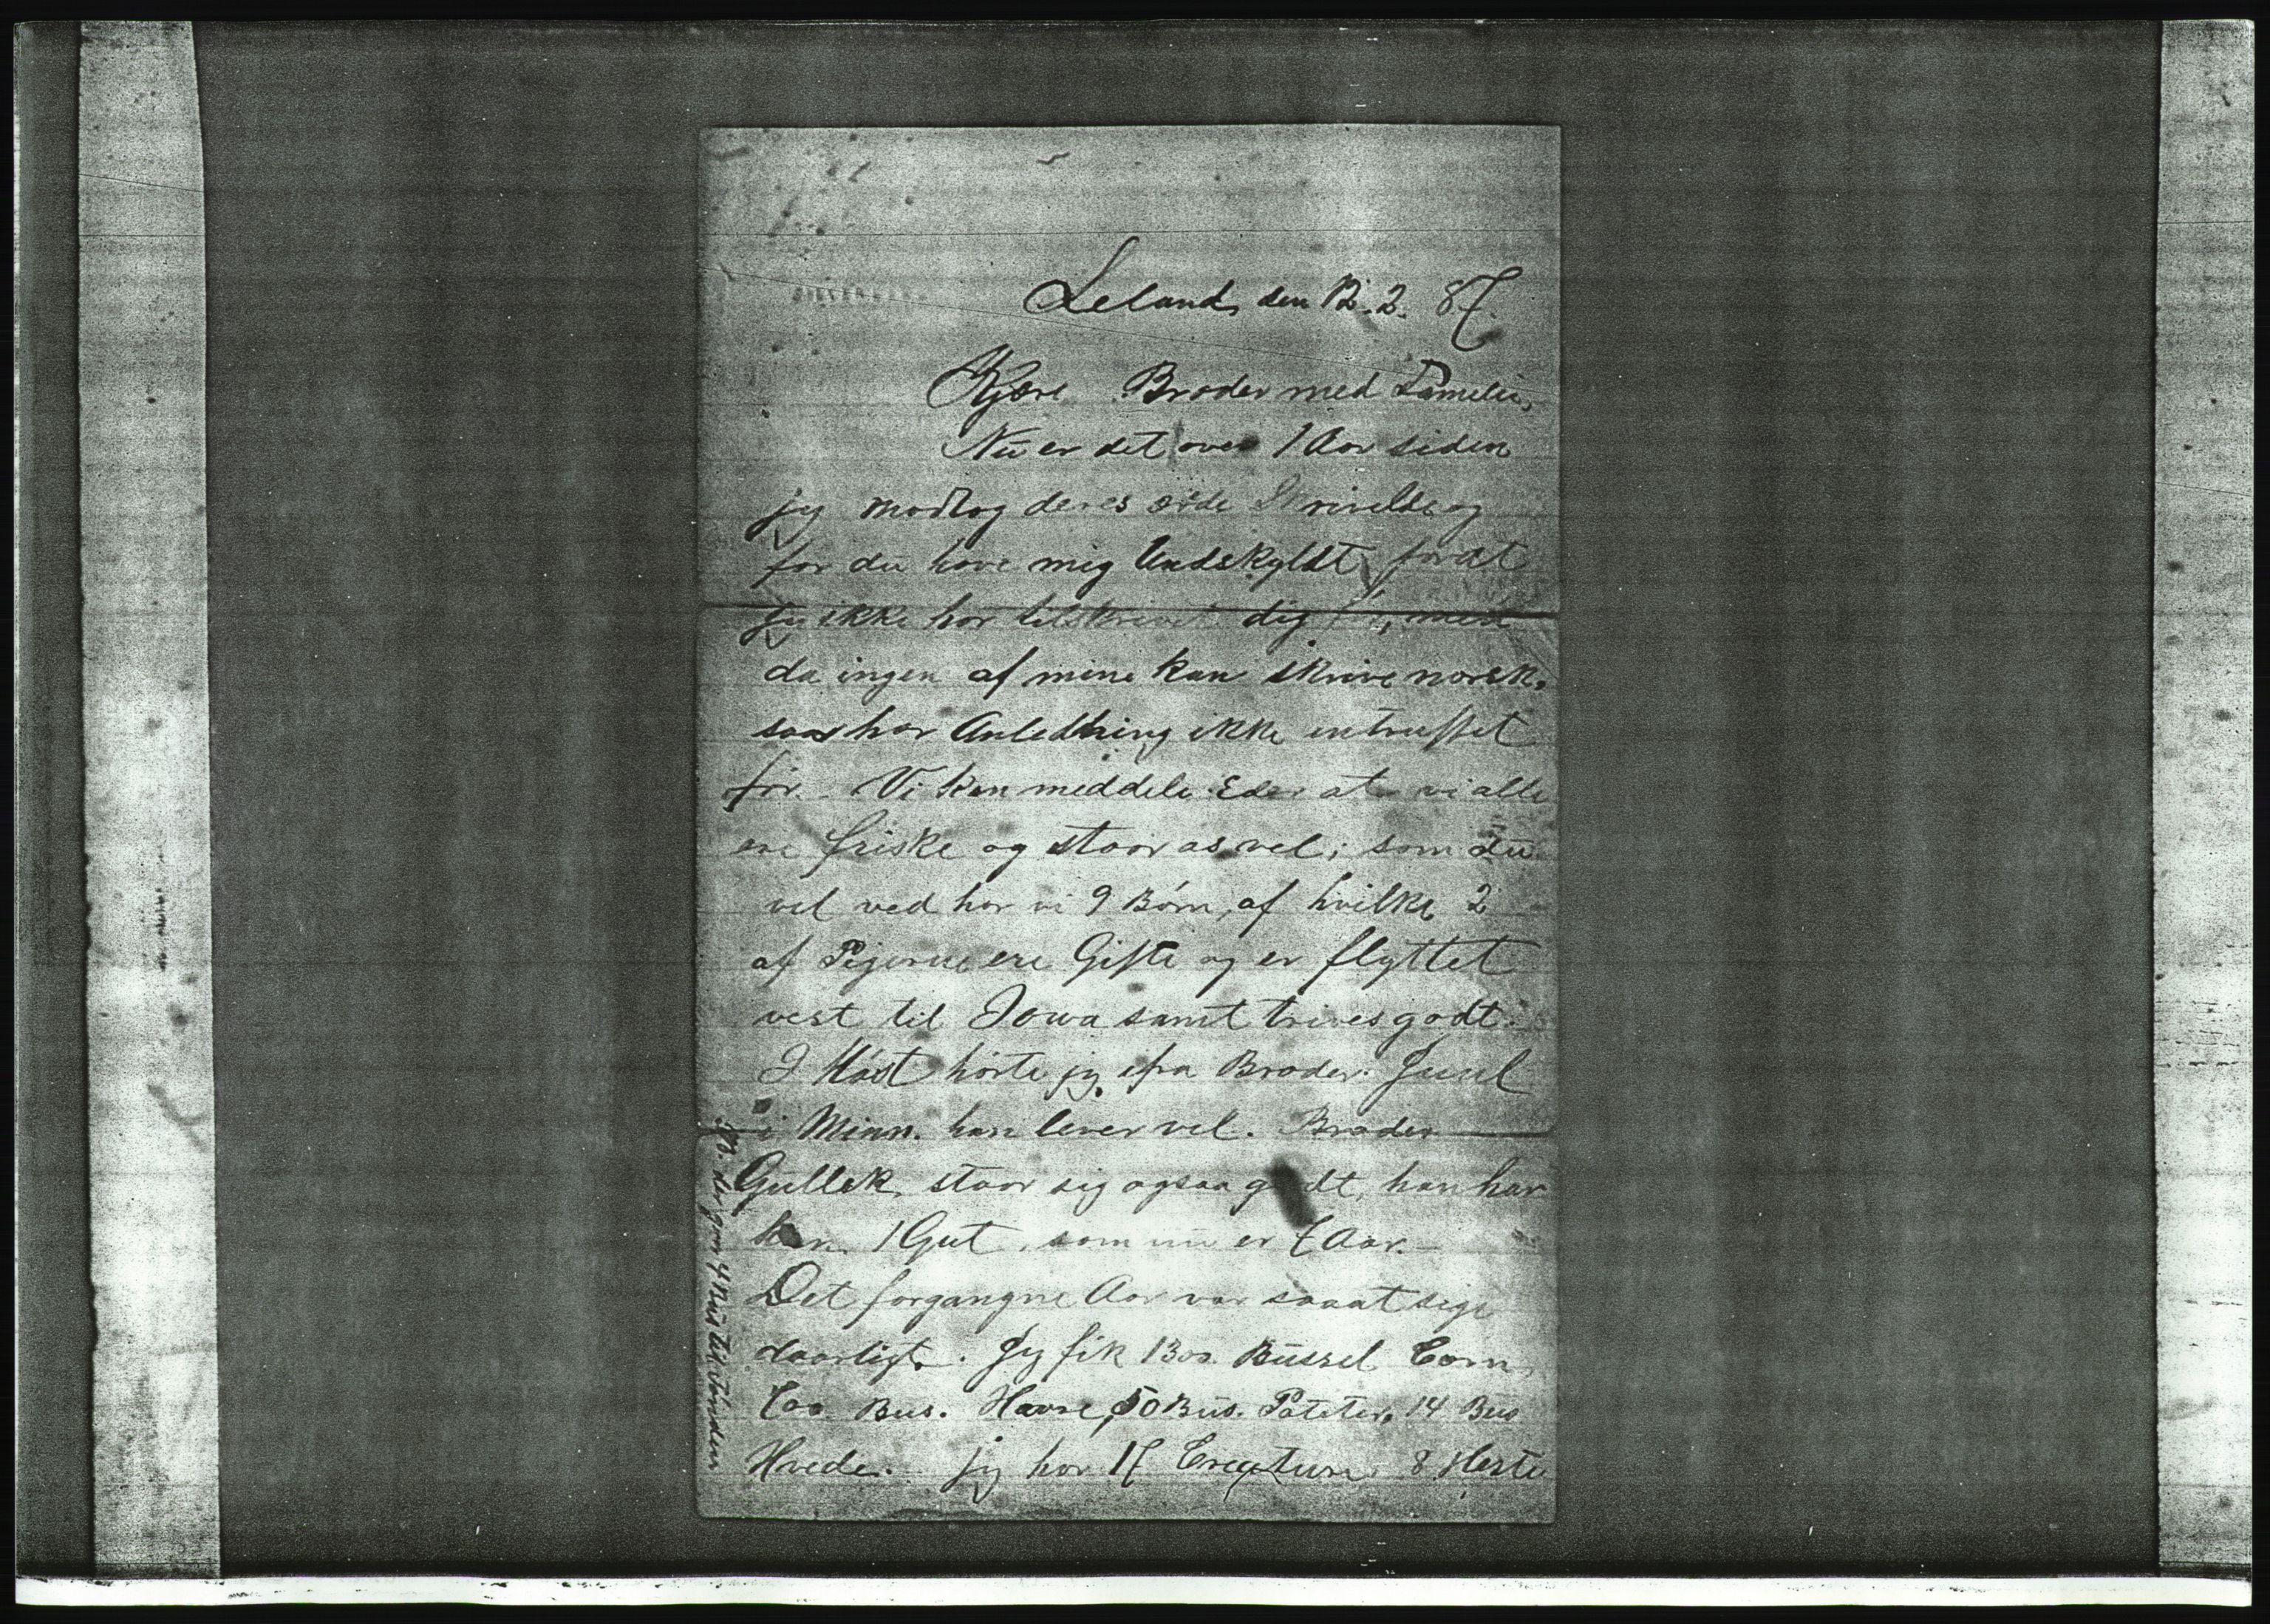 Leland, den 12. 2. 87.
Kjære Broder med Familie,
Nu er det over 1 Aar siden
jeg modtog deres ærede Skrivelse og
for du have mig Undskyldt, fordt
jeg ikke har tilskrevet dig før, men
da ingen af mine kan skrive norsk,
saa har Anledning ikke intruffet
før. Vi kan meddele Eder at vi alle
ere friske og staar os vel; som du
vel ved har vi 9 Børn, af hvilke 2
af Pigerne ere Gifte og er flyttet
vest til Iowa samt trives godt.
I Høst hørte jeg ifra Broder Juul
i Minn. han lever vel. Broder
Gullek, staar sig ogsaa godt, han har
kun 1 Gut, som nu er 7 Aar.
Det forgangne Aar var saa at sige
daarligt. Jeg fik 1300. Bussel Corn,
700 Bus. Havre, 50 Bus. Poteter, 14 Bus
Hvede. jeg har 17 Creature 8 Heste
NB. der gaar 4 Bus til Tønden